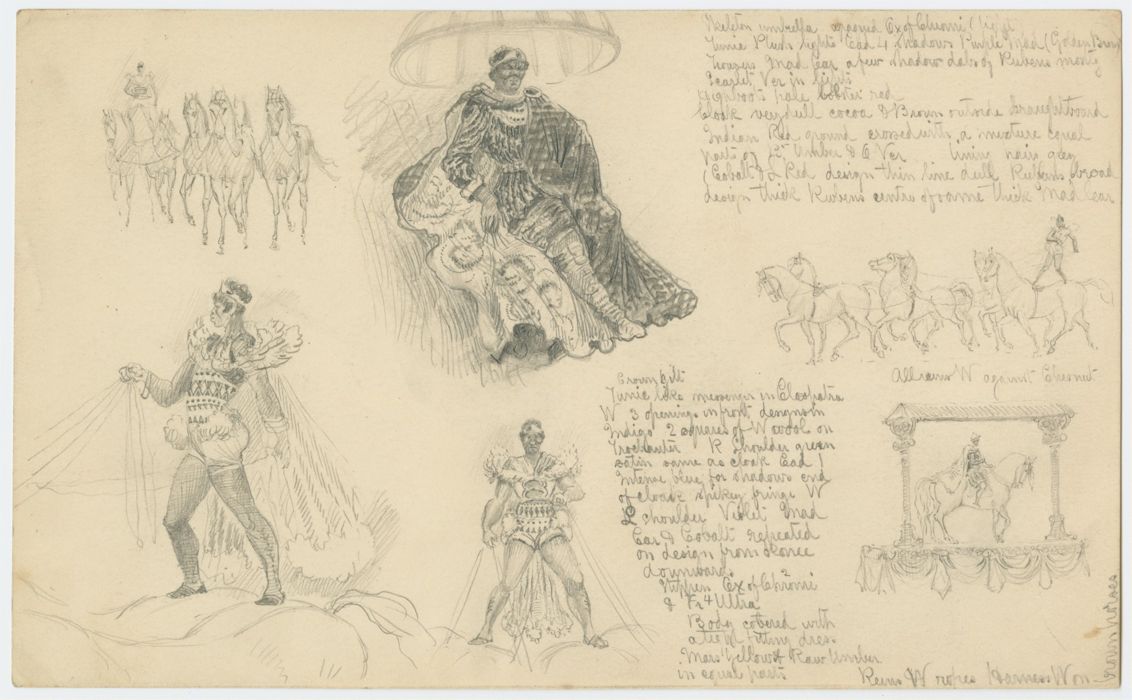 Skeleton umbrella opposed Ox of Chromi (light)
Tunic Plush lights Ead 4 shadows Purple Mad (Golden Brn)
Trowzers Mad Car a few shadow dabs of Rubens mostly
Scarlet Ver in lights
pale lobster red
Cloak very dull cocoa & Brown outside
Indian Red ground crossed with a mixture equal
parts of Lt Umber & O Ver lining
(Cobalt & L Red design thin line dull Rubens broad
design thick Rubens centre of same thick Mad Car
All reins W against Chesnut
Crown gilt
Tunic like messenger in Cleopatra
W 3 openings in front designs in
Indigo 2 squares of W wool on
Trochanter R Shoulder green
satin same as cloak Ead 1
Intense blue for shadows end
of cloak spikey fringe W
L shoulder Violet Mad
Car & Cobalt repeated
on design from
downwards
Ox of Chromi 2
& Fr 4 Ultra
Body covered with
a fitting dress
Mars Yellow & Raw Umber
in equal parts
Reins W ropes Harness W on
brown horses